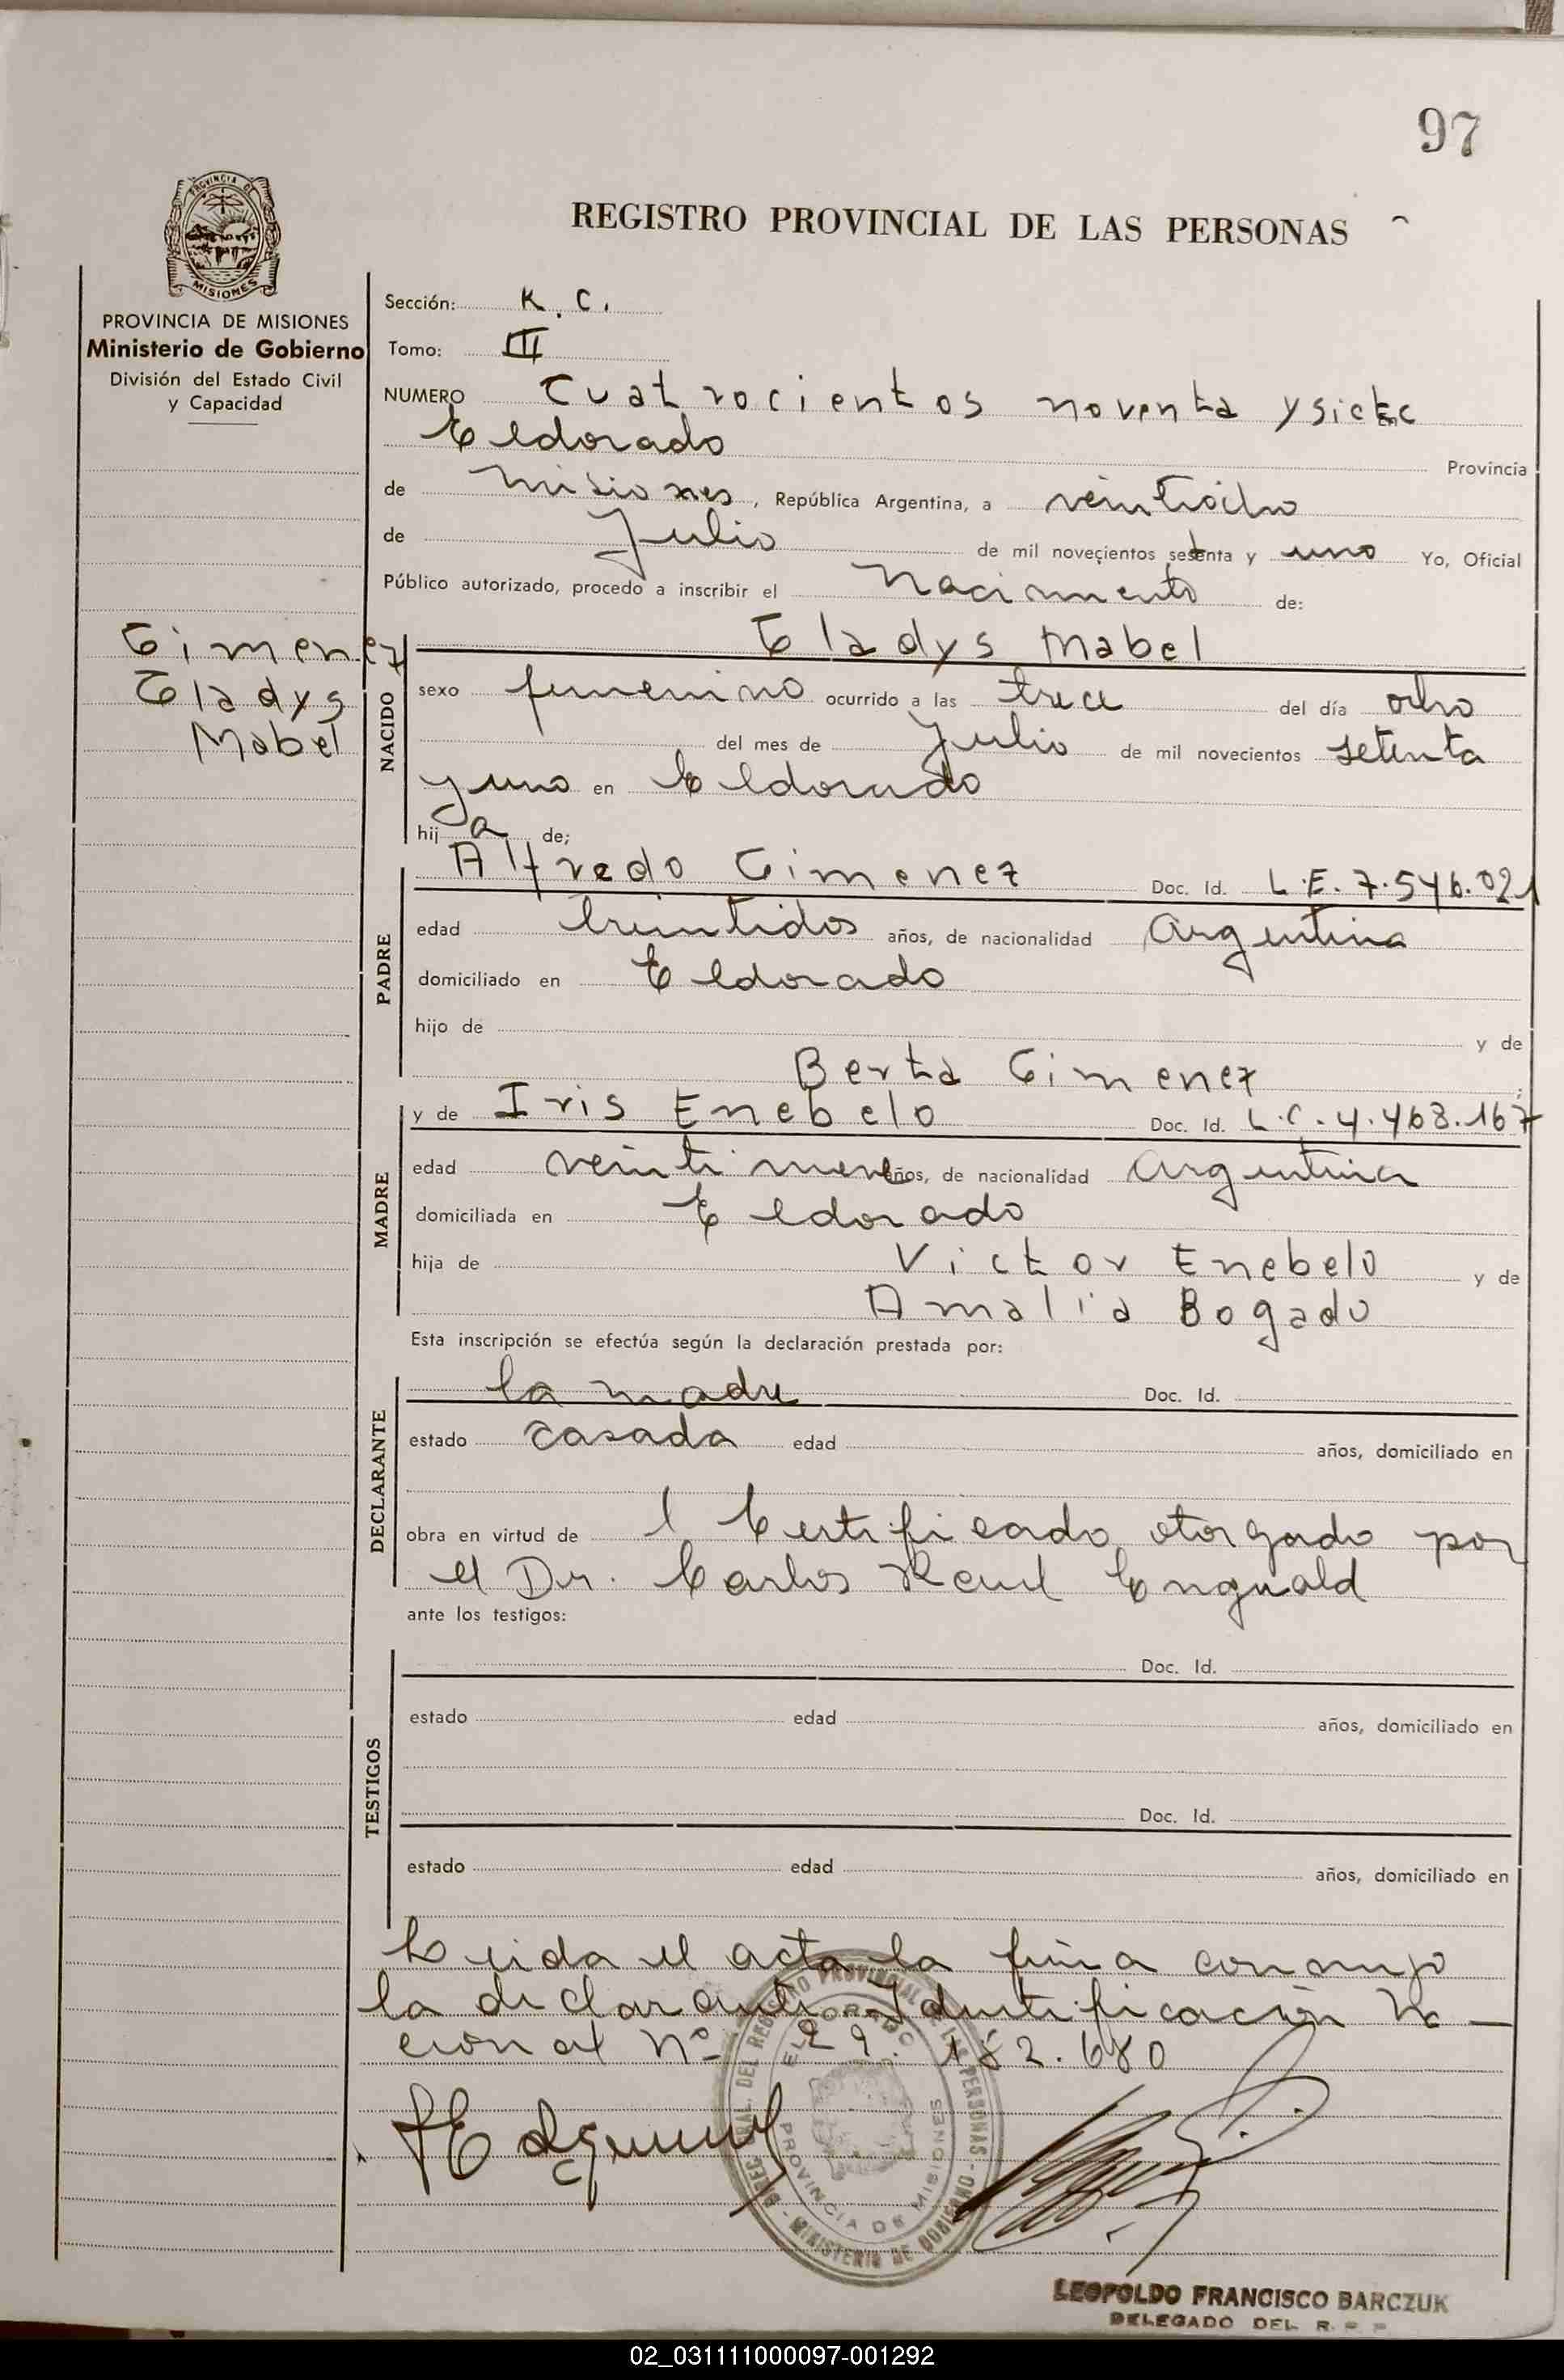 97
REGISTRO PROVINCIAL DE LAS PERSONAS
PROVINCIA DE MISIONES
PROVINCIA DE MISIONES
Ministerio de Gobierno
División del Estado Civil
y Capacidad
Gimenez
Gladys
Mabel
Sección: K. C.
Tomo: III
NUMERO Cuatrocientos noventa y siete
Eldorado Provincia
de Misiones, República Argentina, a veintiocho
de Julio de mil novecientos setenta y uno Yo, Oficial
Público autorizado, procedo a inscribir el Nacimiento de:
Gladys Mabel
NACIDO
sexo femenino ocurrido a las trece del día ocho
del mes de Julio de mil novecientos setenta
y uno en Eldorado
hij a de;
PADRE
Alfredo Gimenez Doc. Id. L.E. 7.546.021
edad treintidos años, de nacionalidad Argentina
domiciliado en Eldorado
hijo de y de
Berta Gimenez
MADRE
y de Iris Enebelo Doc. Id. L.C. 4.468.167
edad veintinueve años, de nacionalidad Argentina
domiciliada en Eldorado
hija de Victor Enebelo y de
Amalia Bogado
Esta inscripción se efectúa según la declaración prestada por:
DECLARANTE
la madre Doc. Id.
estado casada edad años, domiciliado en
obra en virtud de l Certificado otorgado por
el Dr. Carlos Raul
ante los testigos:
TESTIGOS
Doc. Id.
estado edad años, domiciliado en
Doc. Id.
estado edad años, domiciliado en
Leida el acta la firma conmigo
la declarante. Identificación Na-
cional Nº 22.182.680
DIREC. GRAL. DEL REGISTRO PROVINCIAL DE LAS PERSONAS - MINISTERIO DE GOBIERNO -
ELDORADO
PROVINCIA DE MISIONES
LEOPOLDO FRANCISCO BARCZUK
DELEGADO DEL R. P. P.
02_031111000097-001292